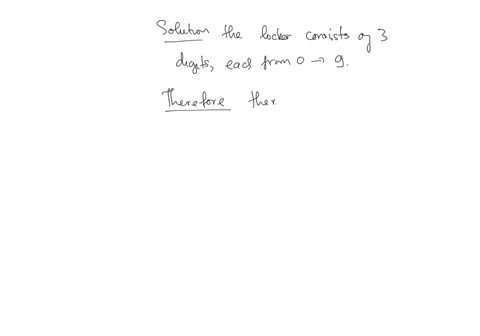 Solution the locker consists of 3
digits, each from 0 → 9.
Therefore ther